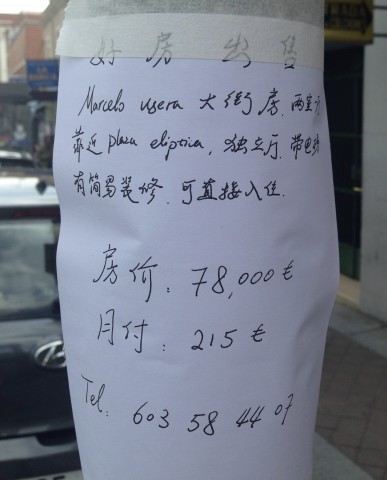 好房出售
Marcelo usera 大街房, 两室一
靠近 plaza eliptica, 独立厅, 带电
有简易装修, 可直接入住.
房价: 78,000 €
月付: 215 €
Tel: 603 58 44 07